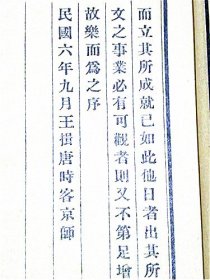 而立其所成就已如此他日者出其所
文之事業必有可觀者則又不第足增
故樂而爲之序
民國六年九月王揖唐時客京師